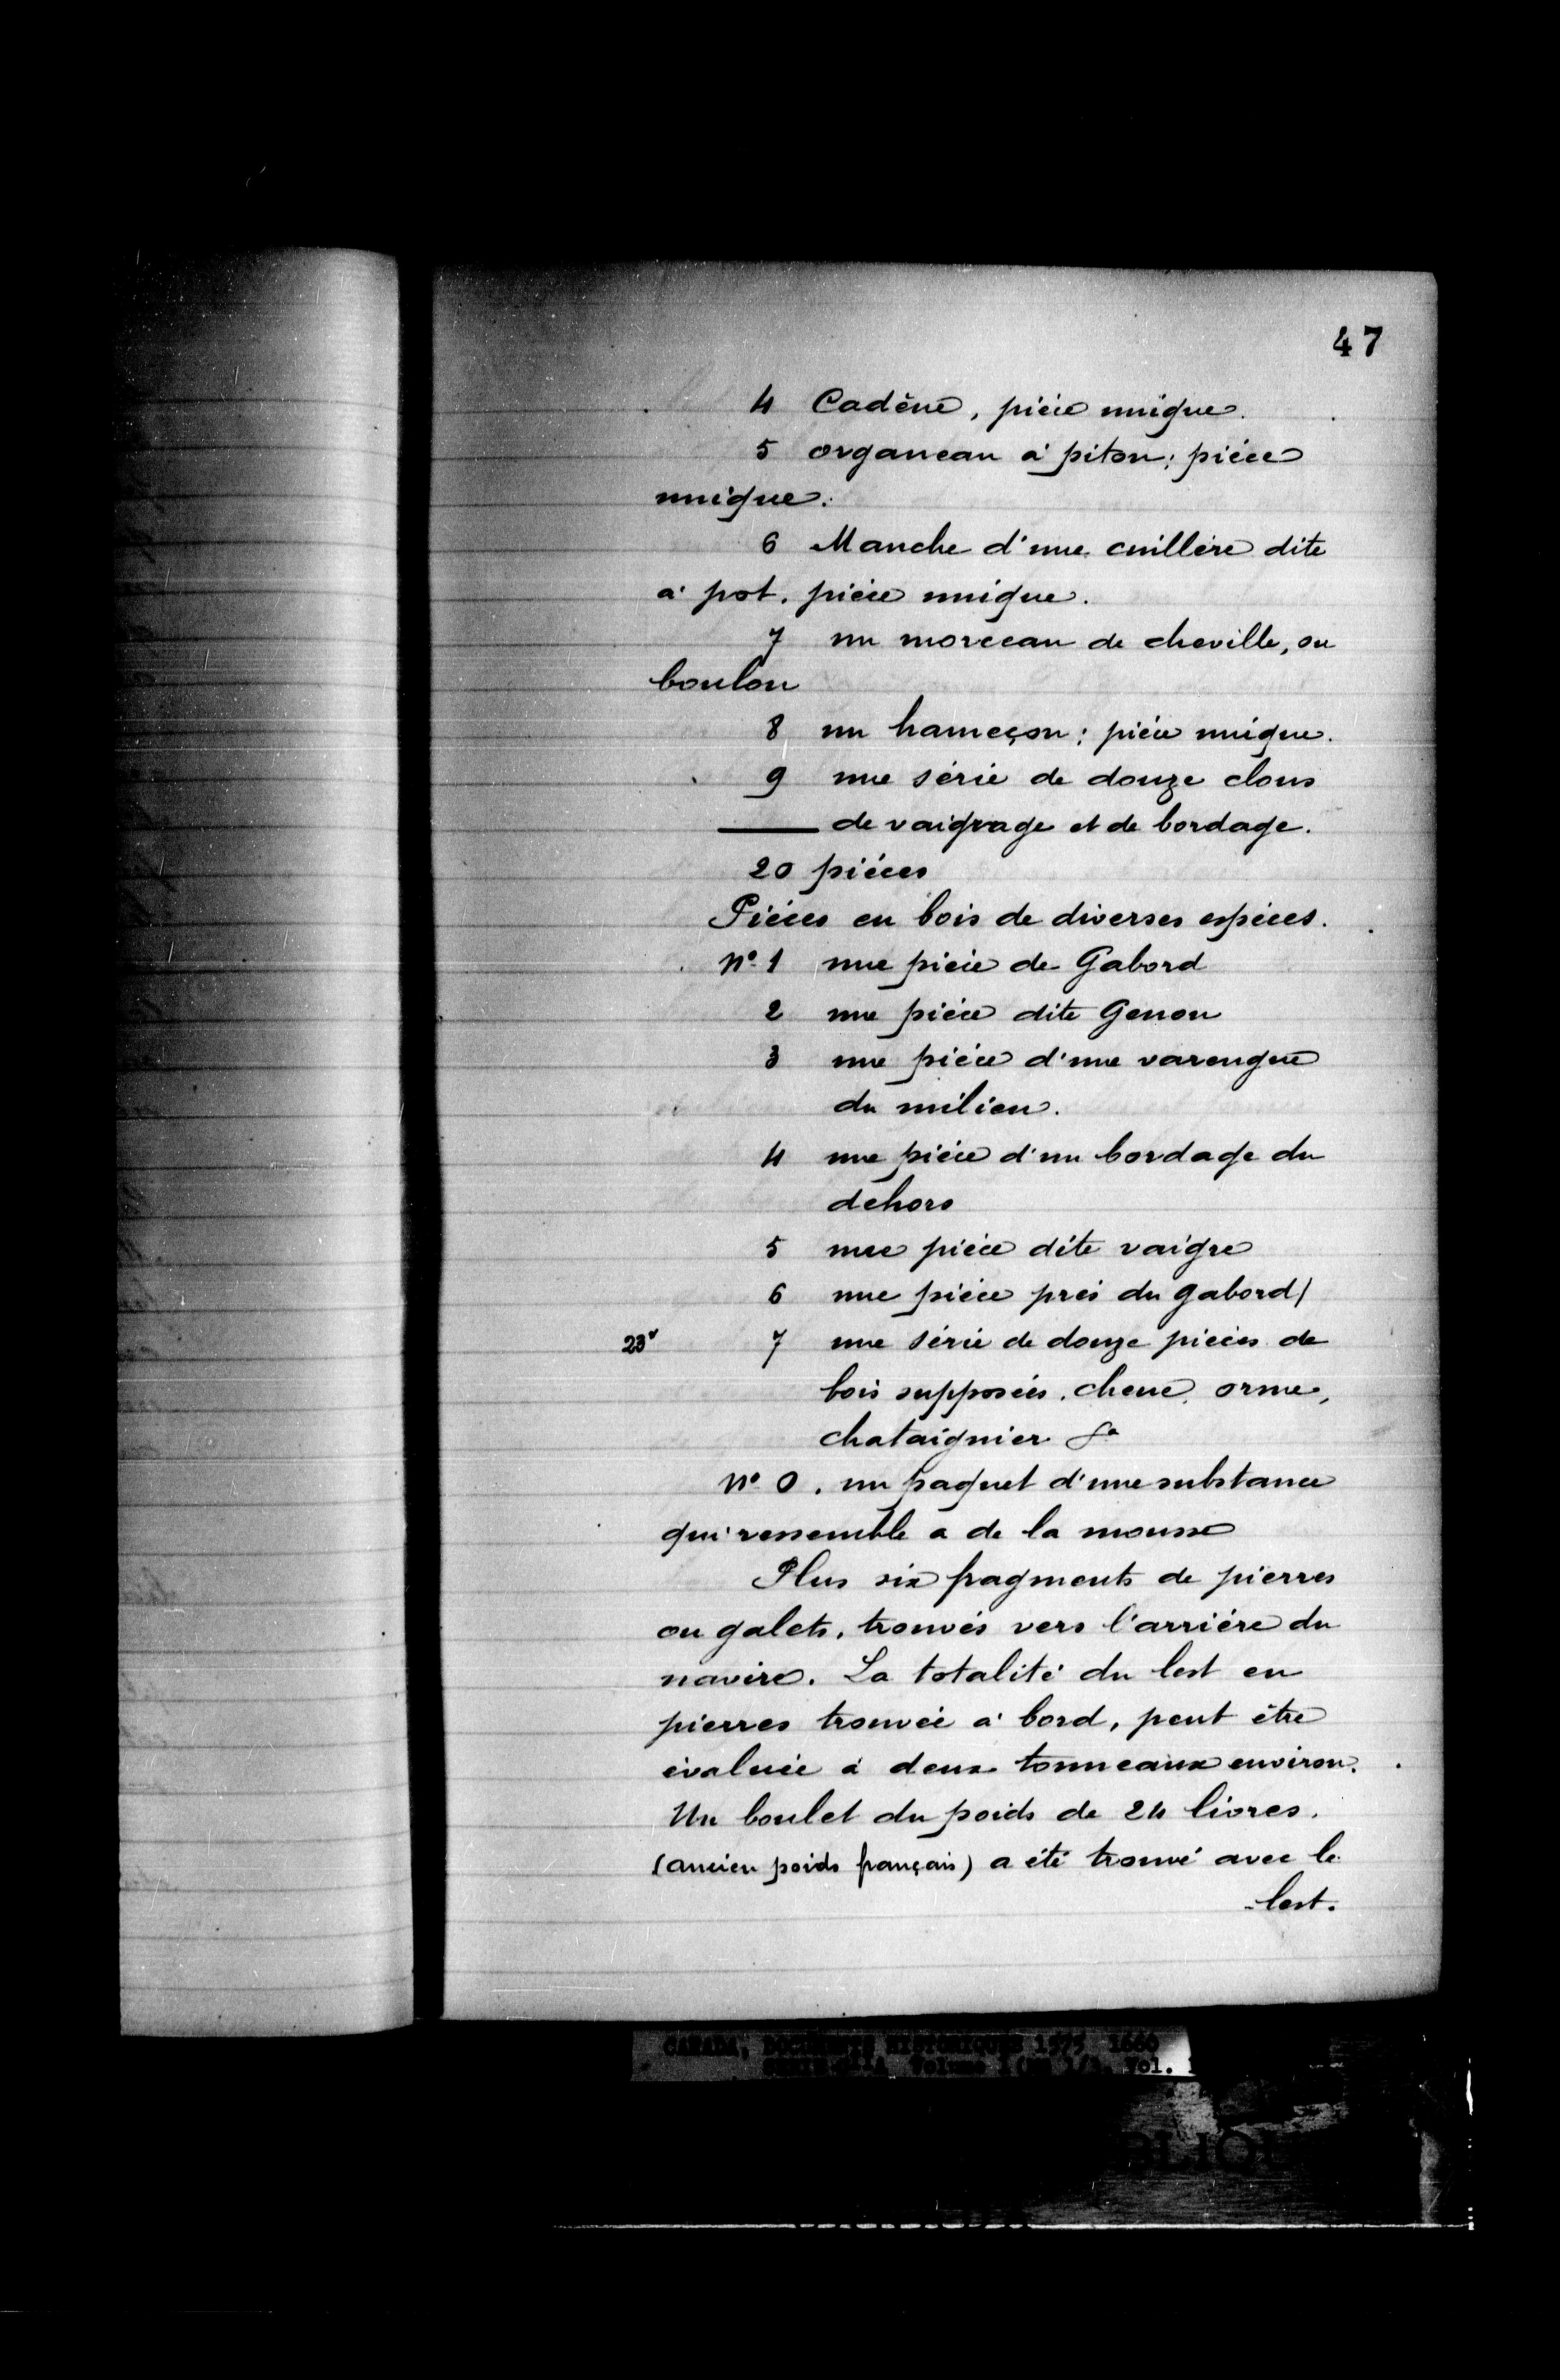 47
4 Cadène, pièce unique.
5 organeau à piton; pièce
unique.
6 Manche d'une cuillère dite
à pot. pièce unique.
7 un morceau de cheville, ou
boulon
8 un hameçon; pièce unique.
9 une série de douze clous
de vaigrage et de bordage.
20 pièces
Pièces en bois de diverses espèces.
Nº 1 une pièce de Gabord
2 une pièce dite Genou
3 une pièce d'une varengue
du milieu.
4 une pièce d'un bordage du
dehors
5 une pièce dite vaigre
6 une pièce près du gabord/
23v 7 une série de douze pièces de
bois supposées, chene, orme,
chataignier &a
Nº 0. un paquet d'une substance
qui ressemble a de la mousse
Plus six fragments de pierres
ou galets, trouvés vers l'arrière du
navire. La totalité du lest en
pierres trouvée à bord, peut être
évaluée à deux tonneaux environ.
Un boulet du poids de 24 livres.
(ancien poids français) a été trouvé avec le
lest.
CANADA, DOCUMENTS HISTORIQUES 1575 1660
Vol.